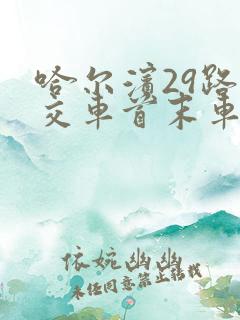 哈尔滨29路
交车首末车
依婉幽幽
未经同意禁止转载